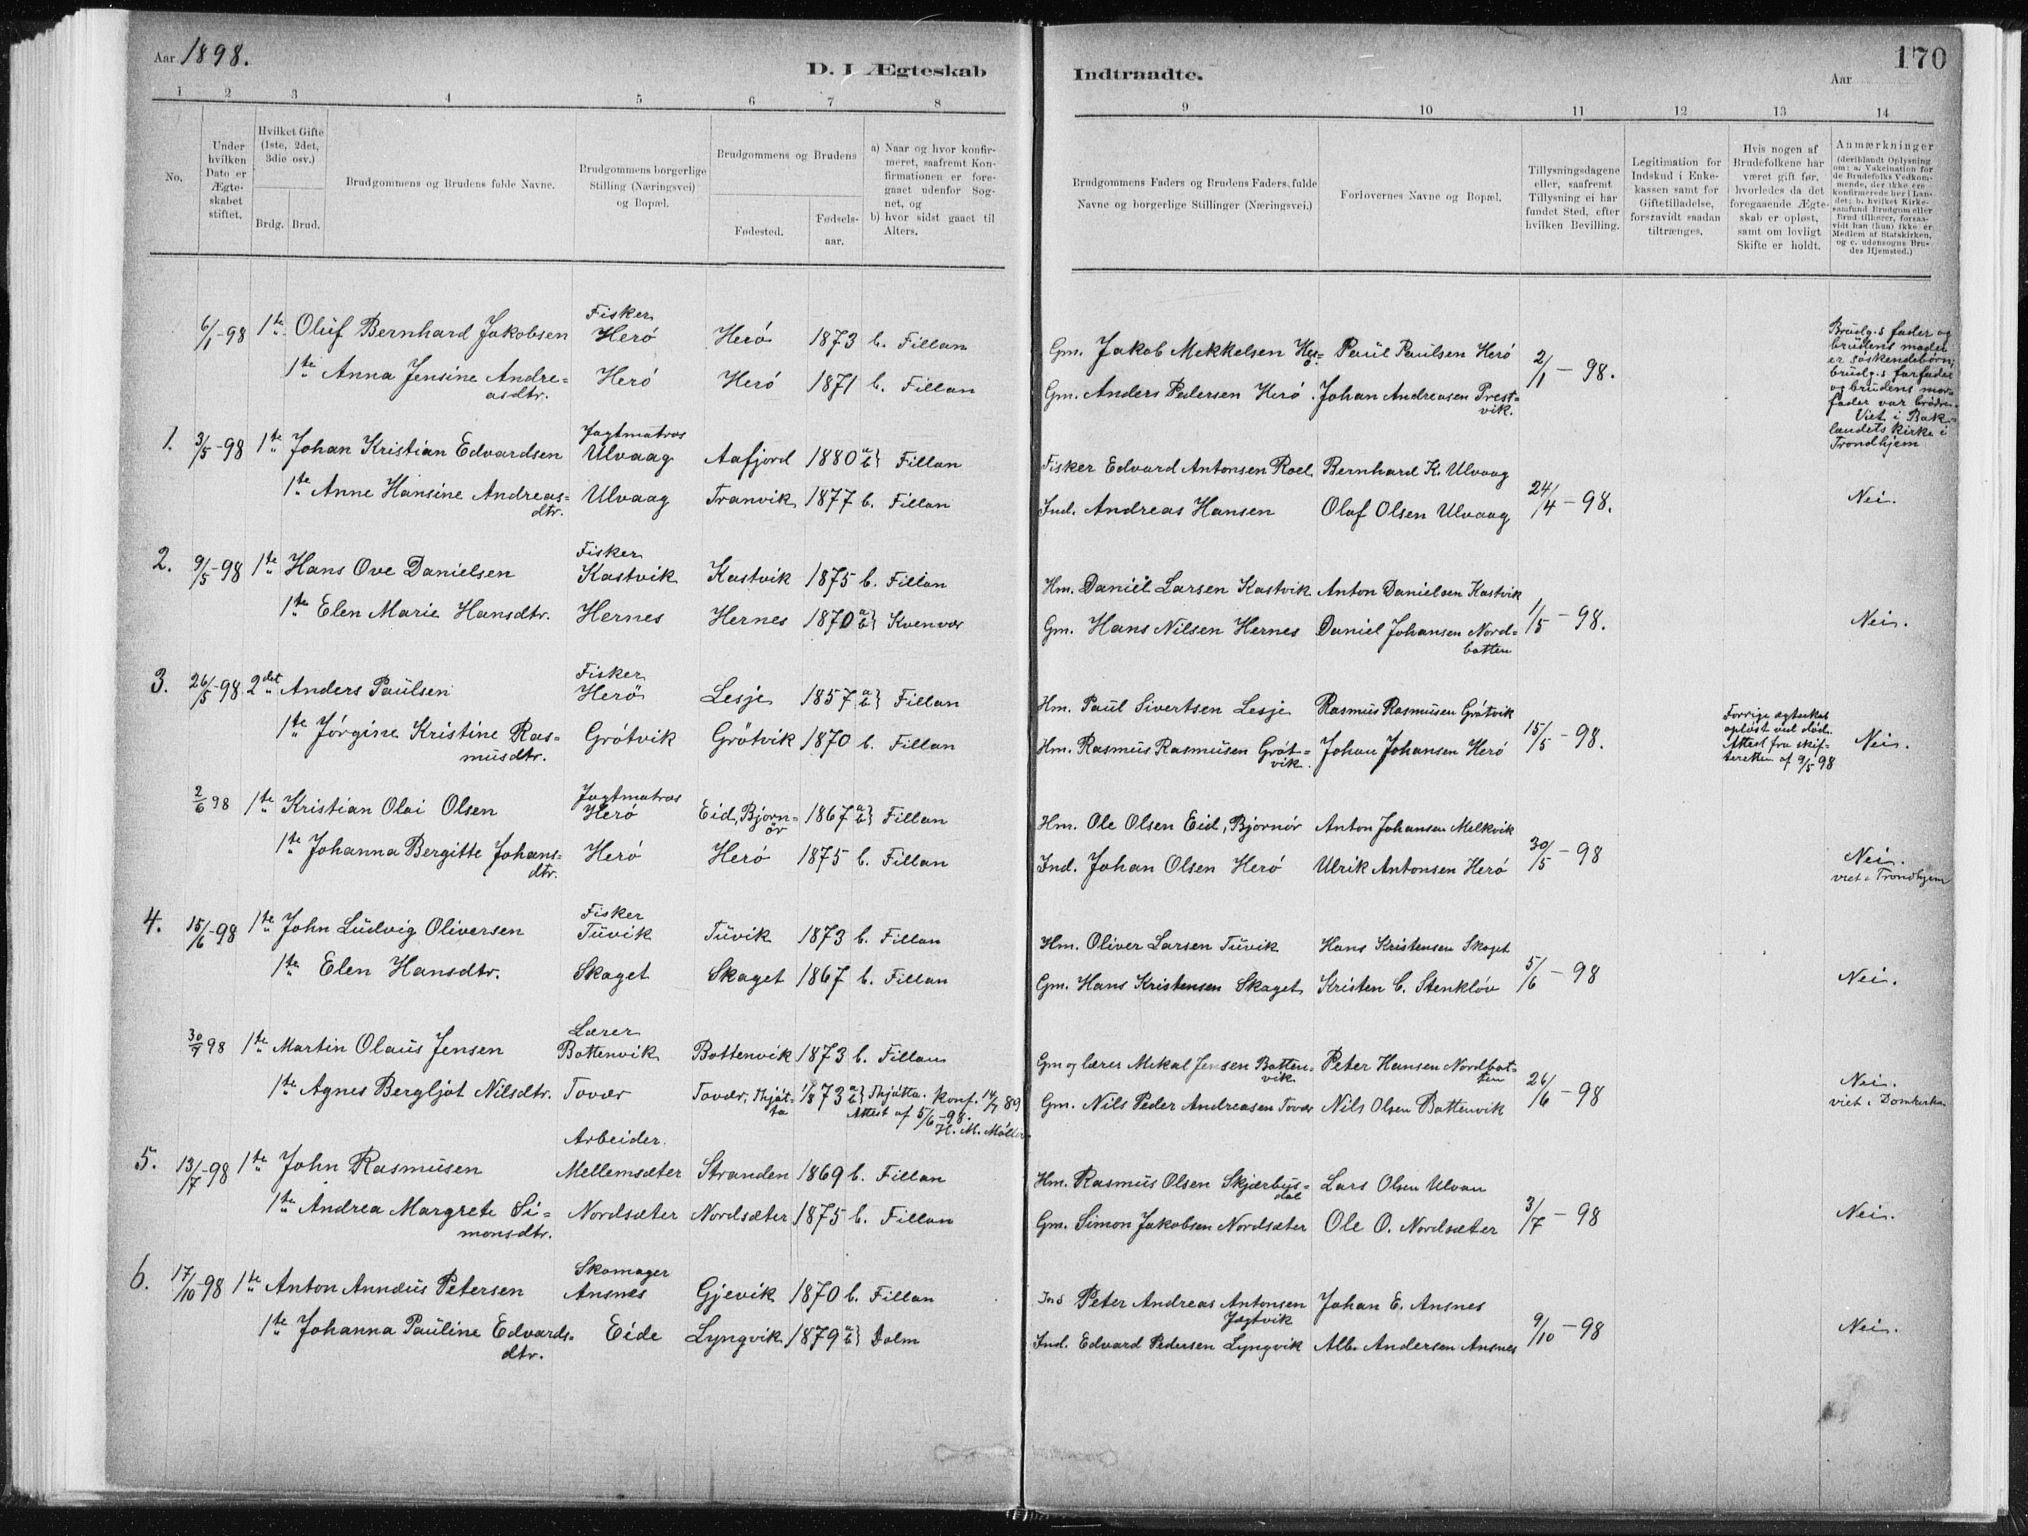 Aar 1898.
D. I Ægteskab
1 2 3 4 5 6 7 8
No.
Under hvilken Dato er Ægte-skabet stiftet.
Hvilket Gifte (1ste, 2det, 3die osv.)
Brdg. Brud.
Brudgommens og Brudens fulde Navne.
Brudgommens borgerlige Stilling (Næringsvei) og Bopæl.
Brudgommens og Brudens
Fødested.
Fødsels-aar.
a) Naar og hvor konfir-meret, saafremt Kon-firmationen er fore-gaaet udenfor Sog-net, og
b) hvor sidst gaaet til Alters.
6/1-98 1te Oluf Bernhard Jakobsen Fisker Herö Herö 1873 b. Fillan
1te Anna Jensine Andre=asdtr. Herö Herö 1871 b. Fillan
1. 3/5-98 1te Johan Kristian Edvardsen Jagtmatros Ulvaag Aafjord 1880 a b} Fillan
1te Anne Hansine Andreas=dtr. Ulvaag Tranvik 1877 b. Fillan
2. 9/5-98 1te Hans Ove Danielsen Fisker Kastvik Kastvik 1875 b. Fillan
1te Elen Marie Hansdtr. Hernes Hernes 1870 a b} Kvenvær
3. 26/5-98 2det Anders Paulsen Fisker Herö Lesje 1857 a b} Fillan
1te Jørgine Kristine Ras=musdtr. Grötvik Grötvik 1870 b. Fillan
2/6 98 1te Kristian Olai Olsen Jagtmatros Herö Eid, Bjørn=ör 1867 a b} Fillan
1te Johanna Bergitte Johans=dtr. Herö Herö 1875 b. Fillan
4. 15/6-98 1te John Ludvig Oliversen Fisker Tuvik Tuvik 1873 b. Fillan
1te Elen Hansdtr. Skaget Skaget 1867 b. Fillan
30/7 98 1te Martin Olaus Jensen Lærer Bottenvik Bottenvik 1873 b. Fillan
1te Agnes Bergljot Nilsdtr. Tovær Tovær, Thjöt=ta 1/8 73 a b} Thjøtta. Konf. 14/7 89
Attest af 5/6-98.
5. 13/7-98 1te John Rasmusen Arbeider. Mellemsæter Stranden 1869 b. Fillan
1te Andrea Margrete Si=monsdtr. Nordsæter Nordsæter 1875 b. Fillan
6. 17/10-98 1te Anton Annæus Petersen Skomager Ansnes Gjevik 1870 b. Fillan
1te Johanna Pauline Edvards=dtr. Eide Lyngvik 1879 a b} Dolm
170
Indtraadte.
Aar
9 10 11 12 13 14
Brudgommens Faders og Brudens Faders, fulde Navne og borgerlige Stillinger (Næringsvei.)
Forlovernes Navne og Bopæl.
Tillysningsdagene eller, saafremt Tillysning ei har fundet Sted, efter hvilken Bevilling.
Legitimation for Indskud i Enke-kassen samt for Giftetilladelse, forsravidt saadan tiltrænges.
Hvis nogen af Brudefolkene har været gift før, hvorledes da det foregaaende Ægte-skab er opløst, samt om lovligt Skifte er holdt.
Anmærkninger
(deriblandt Oplysning om: a. Vakcination for de Brudefolks Vedkom-mende, der ikke ere konfirmerede her i Lan-det; b. hvilket Kirke-samfund Brudgom eller Brud tilhører, forsaa-vidt han (hun) ikke er Medlem af Statskirken, og c. udensogns Bru-des Hjemsted.)
Gm. Jakob Mikkelsen Her=ö Paul Paulsen Herö 2/1-98.
Gm. Anders Pedersen Herö. Johan Andreasen Prest=vik.
Brudg.s fader og brudens moder er söskendebörn; brudg.s farfader og brudens mor=fader var brödre. Viet i Bak=landets kirke i Trondhjem
Fisker Edvard Antonsen Roel Bernhard K. Ulvaag 24/4-98.
Ind. Andreas Hansen Olaf Olsen Ulvaag Nei.
Hm. Daniel Larsen Kastvik Anton Danielsen Kastvik 1/5-98.
Gm. Hans Nilsen Hernes Daniel Johansen Nord=botten Nei.
Hm. Paul Sivertsen Lesje Rasmus Rasmusen Grøtvik 15/5-98.
Hm. Rasmus Rasmusen Gröt=vik. Johan Johansen Herö
Forrige ægteskab opløst ved död. Attest fra skif=teretten af 9/5 98
Nei.
Hm. Ole Olsen Eid, Bjørnör Anton Johansen Melkvik 30/5-98
Ind. Johan Olsen Herö Ulrik Antonsen Herö Nei. viet i Trondhjem
Hm. Oliver Larsen Tuvik Hans Kristensen Skaget 5/6-98
Gm. Hans Kristensen Skaget Kristen C. Stenklöv Nei.
Gm og lærer Mikal Jensen Botten=vik Peter Hansen Nordbot=ten 26/6-98
Gm. Nils Peder Andreasen Tovær Nils Olsen Bottenvik Nei. viet i Domkirken
Hm. Rasmus Olsen Skjærbus=dal Lars Olsen Ulvan 3/7-98
Gm. Simon Jakobsen Nordsæter Ole O. Nordsæter Nei.
Ind Peter Andreas Antonsen Jagtvik Johan E. Ansnes 9/10-98
Ind. Edvard Pedersen Lyngvik Alb. Andersen Ansnes Nei.